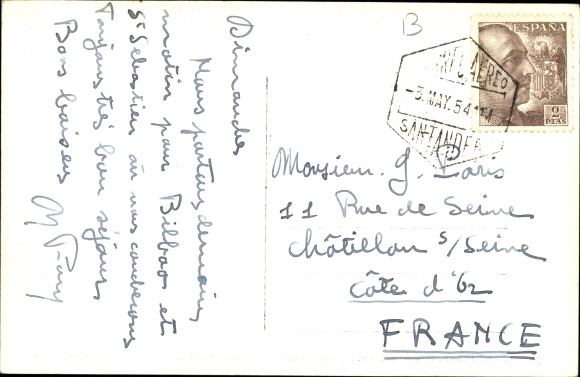 Dimanche
Nous partons demain
matin pour Bilbao et
St Sebastien où nous coucherons
Toujours très bon séjour
Bons baisers
B
ESPAÑA
CORREO AEREO
-3. MAY. 54
SANTANDER
2
PTAS
Monsieur. J. Paris
11 Rue de Seine
Châtillon s/Seine
Côte d'Or
FRANCE